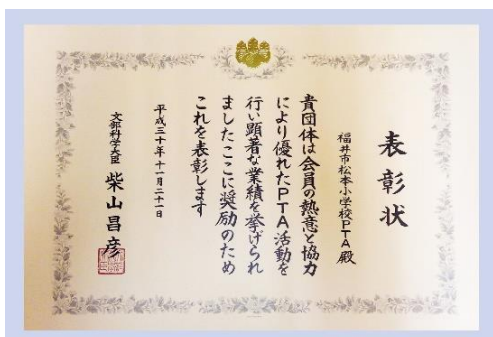 表彰状
福井市松本小学校PTA殿
貴団体は会員の熱意と協力
により優れたPTA活動を
行い顕著な業績を挙げられ
ましたここに奨励のため
これを表彰します
平成三十年十一月二十一日
文部科学大臣 柴山昌彦